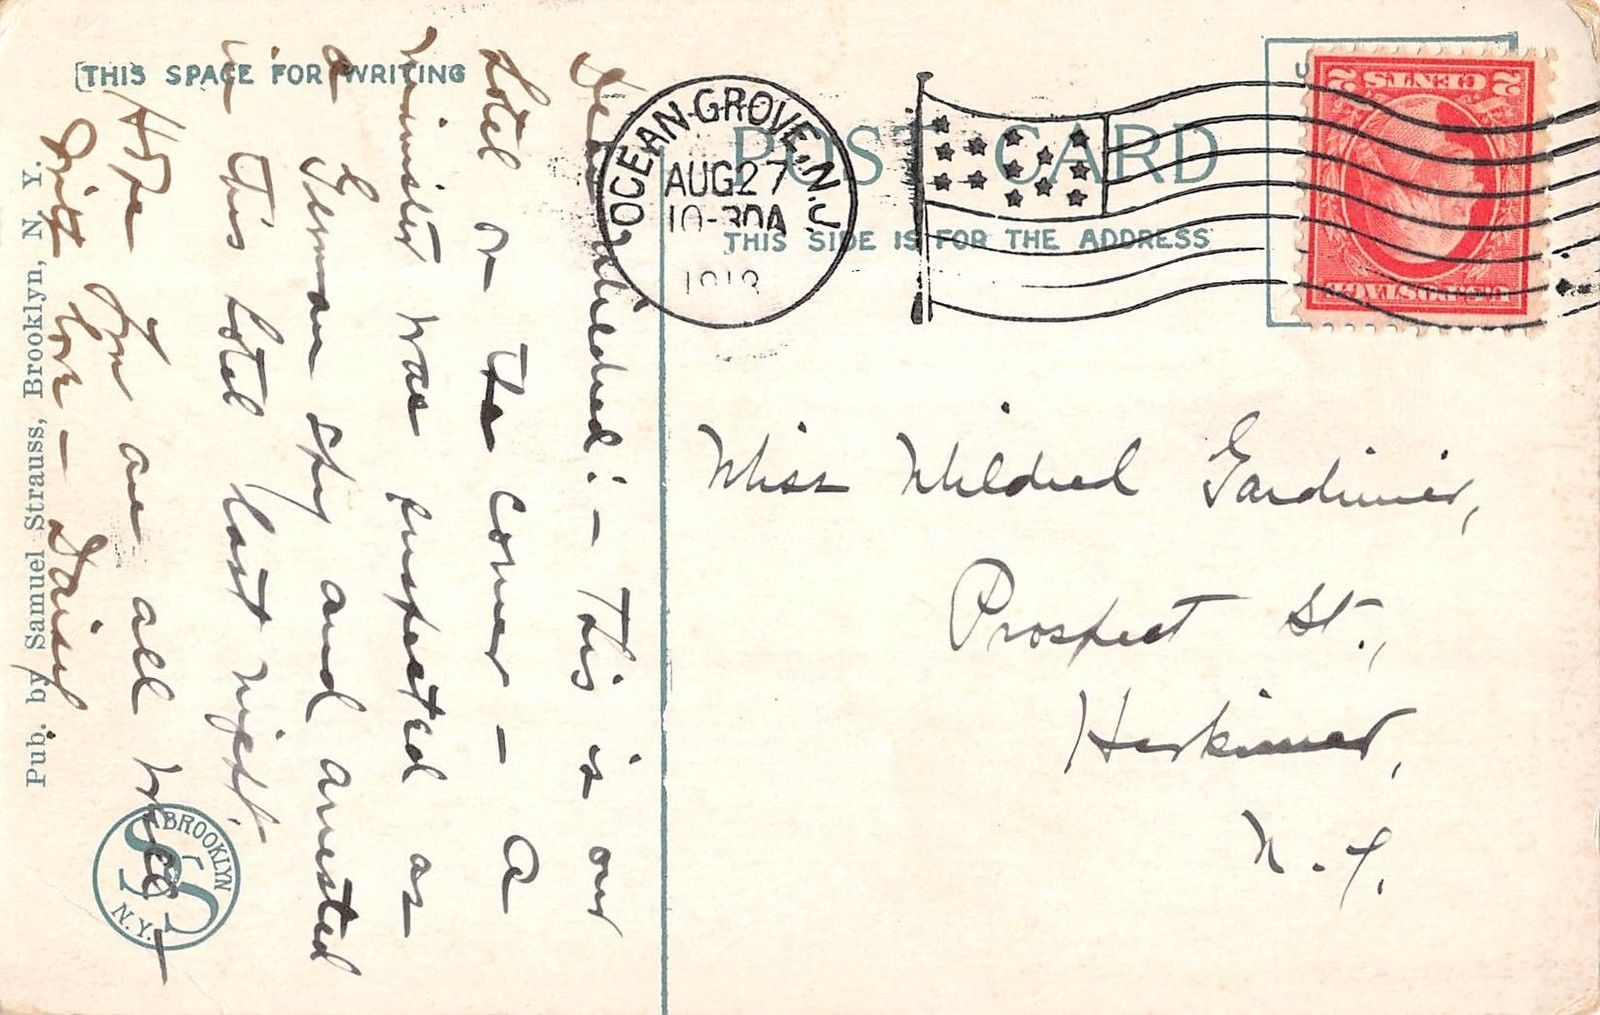 THIS SPACE FOR WRITING
POST CARD
THIS SIDE IS FOR THE ADDRESS
OCEAN GROVE, N.J.
AUG 27
10-30A
1918
U.S. POSTAGE
2 CENTS 2
Dear Mildred:- This is our
hotel on the corner - a
minister was suspected as
a German spy and arrested
in this hotel last night.
Hope you are all well -
With love - Daisy
Miss Mildred Gardinier,
Prospect St.,
Herkimer,
N.Y.
Pub. by Samuel Strauss, Brooklyn, N. Y.
BROOKLYN
SS
N.Y.